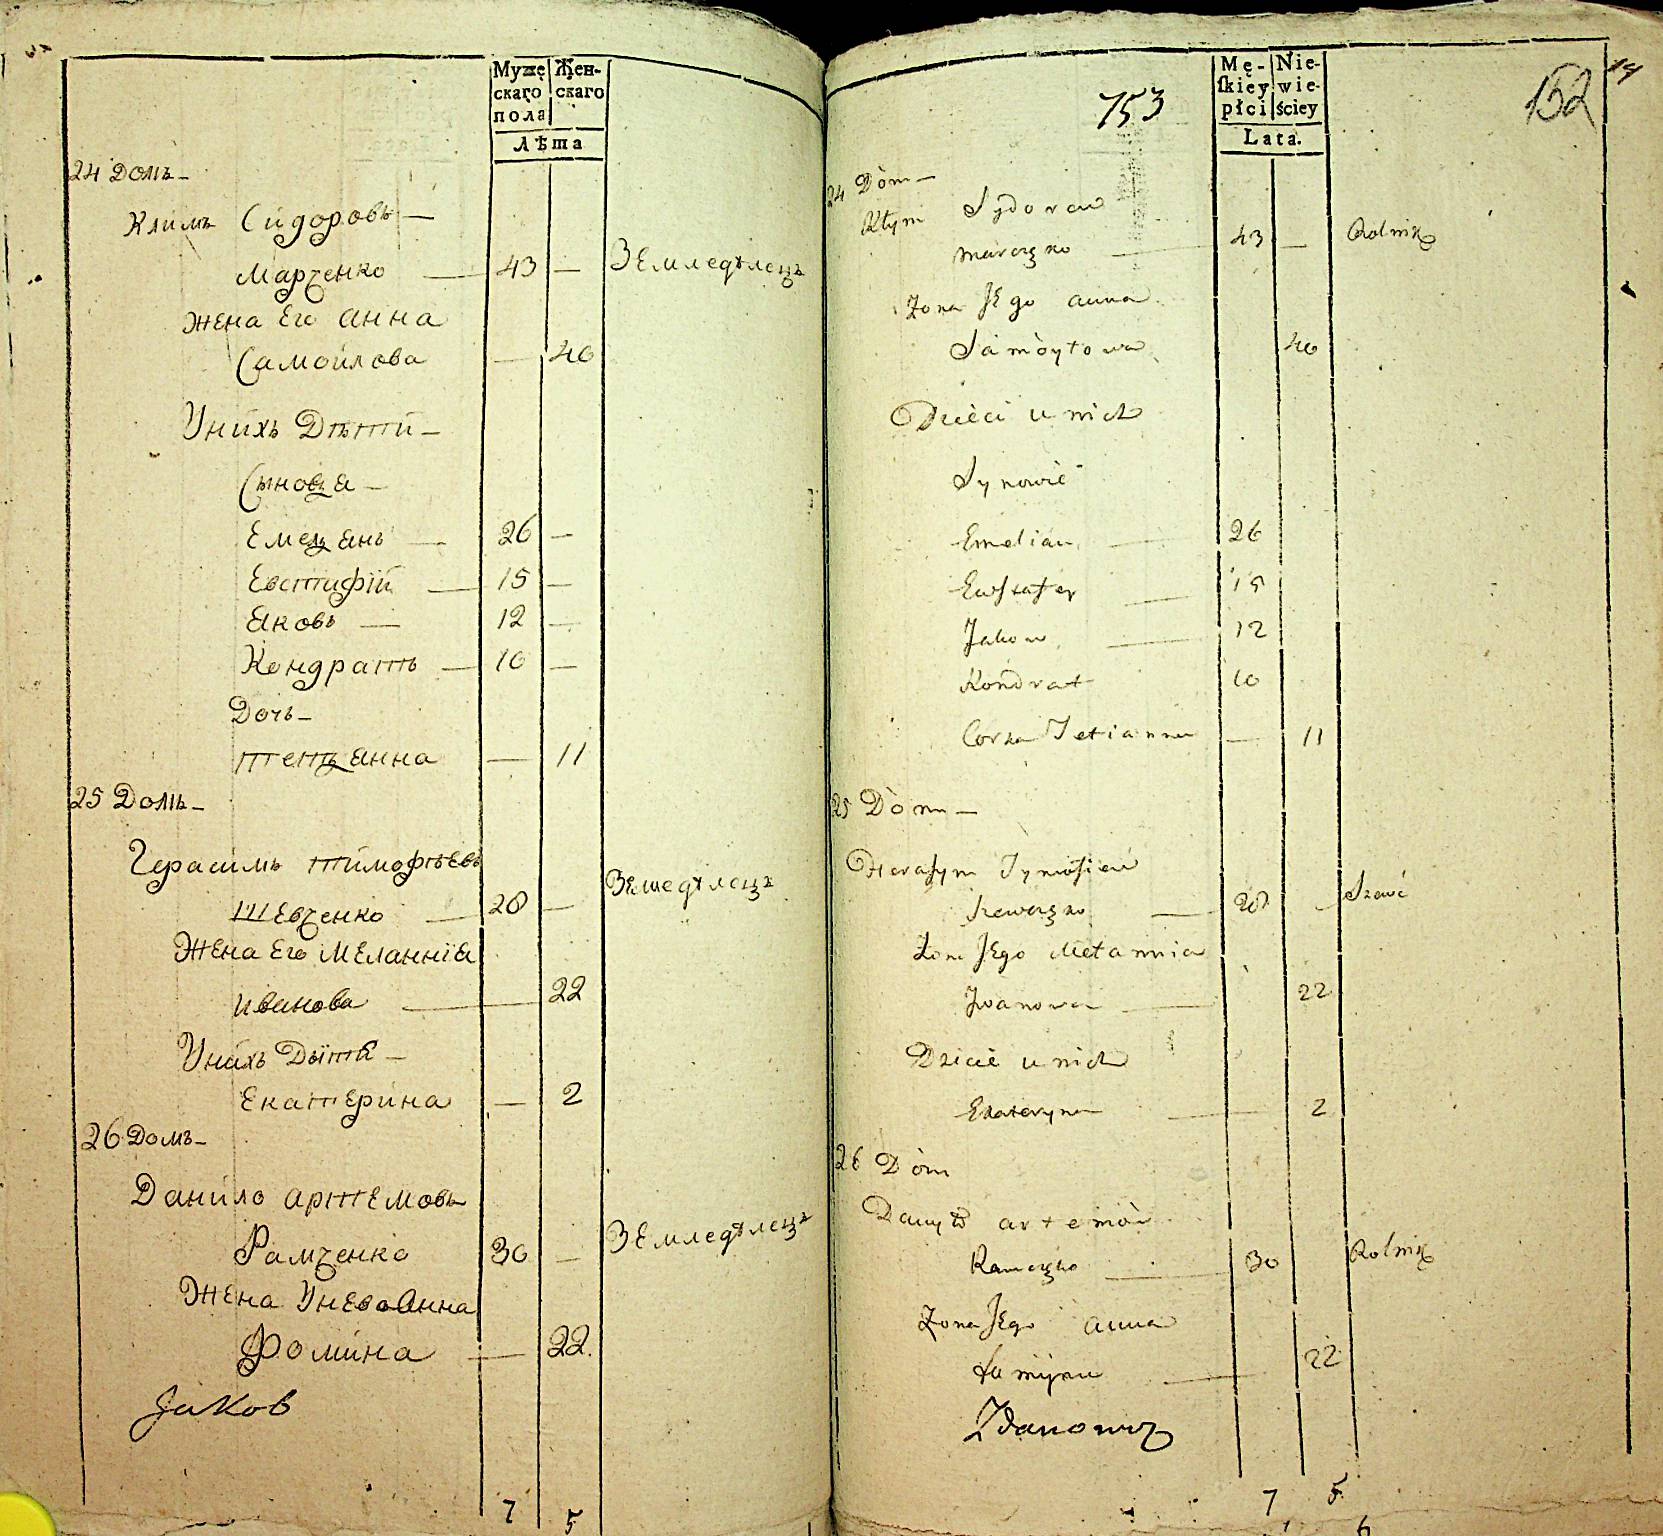 Мужескаго пола
Женскаго
Лѣта
24 Домъ
Климъ Сидоровъ
Марченко 43 Земледѣлецъ
Жена Его Анна
Самойлова 40
Унихъ Дѣти
Сыновья
Емельянъ 26
Евстифій 15
Яковъ 12
Кондратъ 10
Дочь
Тетьянна 11
25 Домъ
Герасимъ Тимофѣевъ
Шевченко 28 Земледѣлецъ
Жена Его Меланнія
Иванова 22
Унихъ Дѣти
Екатерина 2
26 Домъ
Данило Артемовъ
Рамченко 30 Земледѣлецъ
Жена Унево Анна
Фомина 22.
Jаков
7 5
753
152
14
Mę-skiey płci
Nie-wie-ściey
Lata.
24 Dòm
Kłym Sydorow
Marczko 43 Rolnik
Zona JEgo Anna
Samòyłowa 40
Dzieci u nich
Synowie
Emelian 26
Ewstafiy 15
Jakow 12
Kondrat 10
Corka Tetianna 11
25 Dòm
Herasym Tymofiew
Szewczko 28 Szewc
Zona JEgo Mełannia
Jwanowa 22
Dzieci u nich
Ekateryna 2
26 Dòm
Danyło Artemòw
Ramczko 30 Rolnik
Zona JEgo Anna
Famyna 22
Zdanowicz
7 5
6